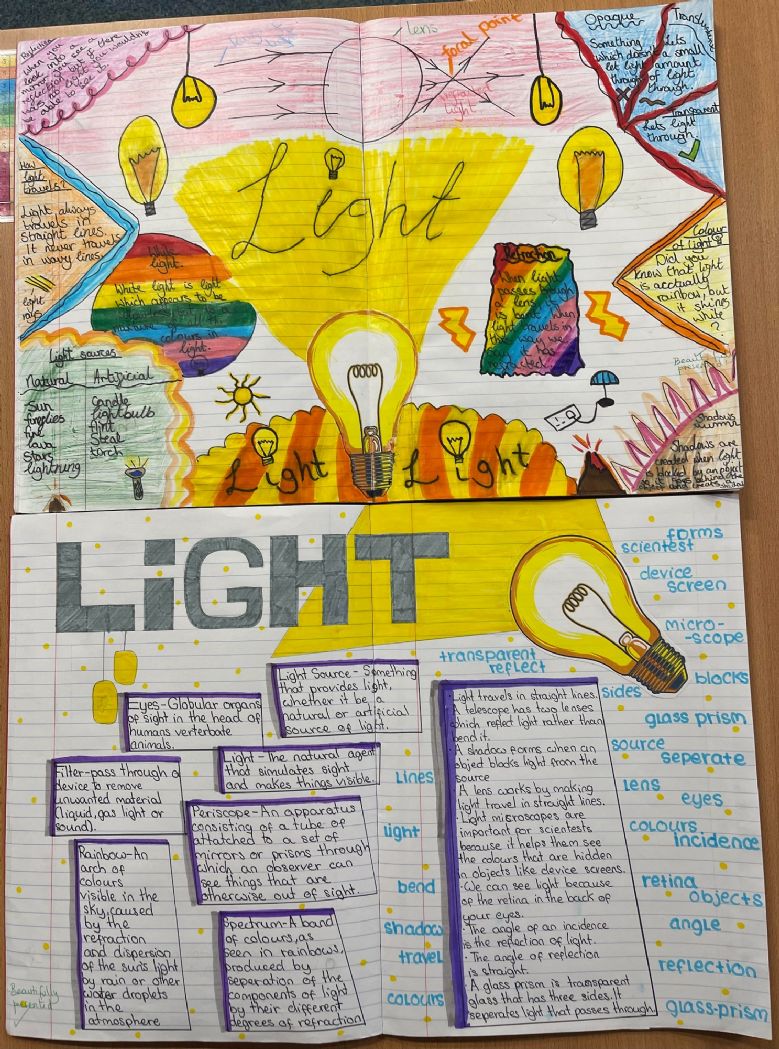 Reflection
when you
look into a
mirror you see a
reflection but if there
was no light you wouldn't
be able to see it.
lens
focal point
refracted
light
Opaque
Something
which doesn't
let light
through.
Translucent
lets
a small
amount
of light
through.
Transparent
Lets light
through.
How
light
travels?
Light always
travels in
straight lines.
It never travels
in wavy lines.
light
rays
Light
White
light.
White light is light
which appears to be
mixture of
colours in
light.
Refraction
When light
passes through
a lens it
is bent. When
light travels in
this way we
say it has
refracted
Colour
of light?
Did you
know that light
is acctually
rainbow, but
it shines
white
?
Beautifully
presented
Light sources
Natural
Sun
fireflies
fire
lava
Stars
lightning
Artificial
Candle
lightbulb
flint
Steal
torch
Light
Light
Shadows
Shadows are
created when light
is blocked by an object
so it goes behind the
object and creates a
LiGHT
forms
scientest
device
screen
micro-
-scope
blocks
transparent
reflect
sides
glass prism
source
seperate
Lens
eyes
colours
incidence
retina
objects
angle
reflection
glass-prism
Lines
light
bend
shadow
travel
colours
Light Source - Something
that provides light,
whether it be a
natural or artificial
source of light.
Eyes-Globular organs
of sight in the head of
humans verterbate
animals.
Light - The natural agent
that simulates sight
and makes things visible.
Filter-pass through a
device to remove
unwanted material
(liquid, gas light or
sound).
Periscope-An apparatus
consisting of a tube of
attatched to a set of
mirrors or prisms through
which an observer can
see things that are
otherwise out of sight.
Rainbow-An
arch of
colours
visible in the
sky, caused
by the
refraction
and dispersion
of the sun's light
by rain or other
water droplets
in the
atmosphere
Spectrum-A band
of colours, as
seen in rainbows,
produced by
separation of the
components of light
by their different
degrees of refraction
· Light travels in straight lines.
· A telescope has two lenses
which reflect light rather than
bend it.
· A shadow forms when an
object blocks light from the
source
· A lens works by making
light travel in straight lines.
· Light microscopes are
important for scientests
because it helps them see
the colours that are hidden
in objects like device screens.
· We can see light because
of the retina in the back of
your eyes.
· The angle of an incidence
is the reflection of light.
· The angle of reflection
is straight.
· A glass prism is transparent
glass that has three sides. It
seperates light that passes through
Beautifully
presented